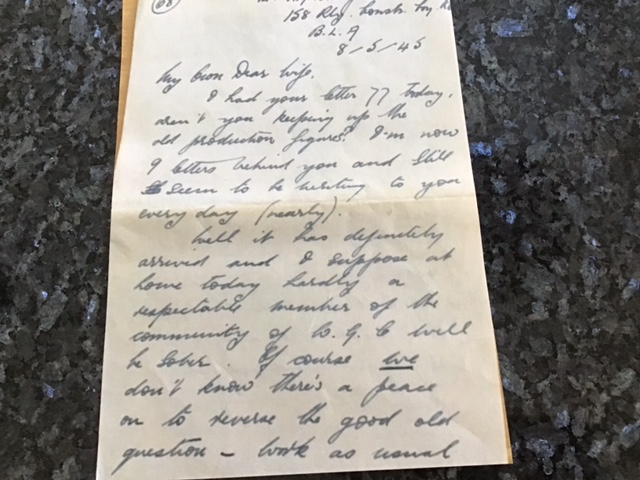 68
158 Rly. Constr. Coy R.E
B.L.A
8/5/45
My Own Dear Wife,
I had your letter 77 today,
aren't you keeping up the
old production figures? I'm now
9 letters behind you and still
seem to be writing to you
every day (nearly).
Well it has definitely
arrived and I suppose at
home today hardly a
respectable member of the
community of W. G. C will
be sober. Of course we
don't know there's a peace
on to reverse the good old
question – work as usual